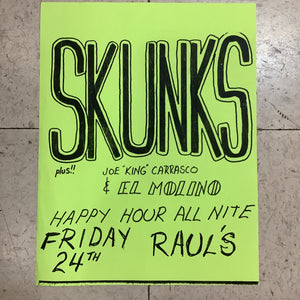 SKUNKS
plus!! JOE "KING" CARRASCO
& EL MOLINO
HAPPY HOUR ALL NITE
FRIDAY RAUL'S
24TH